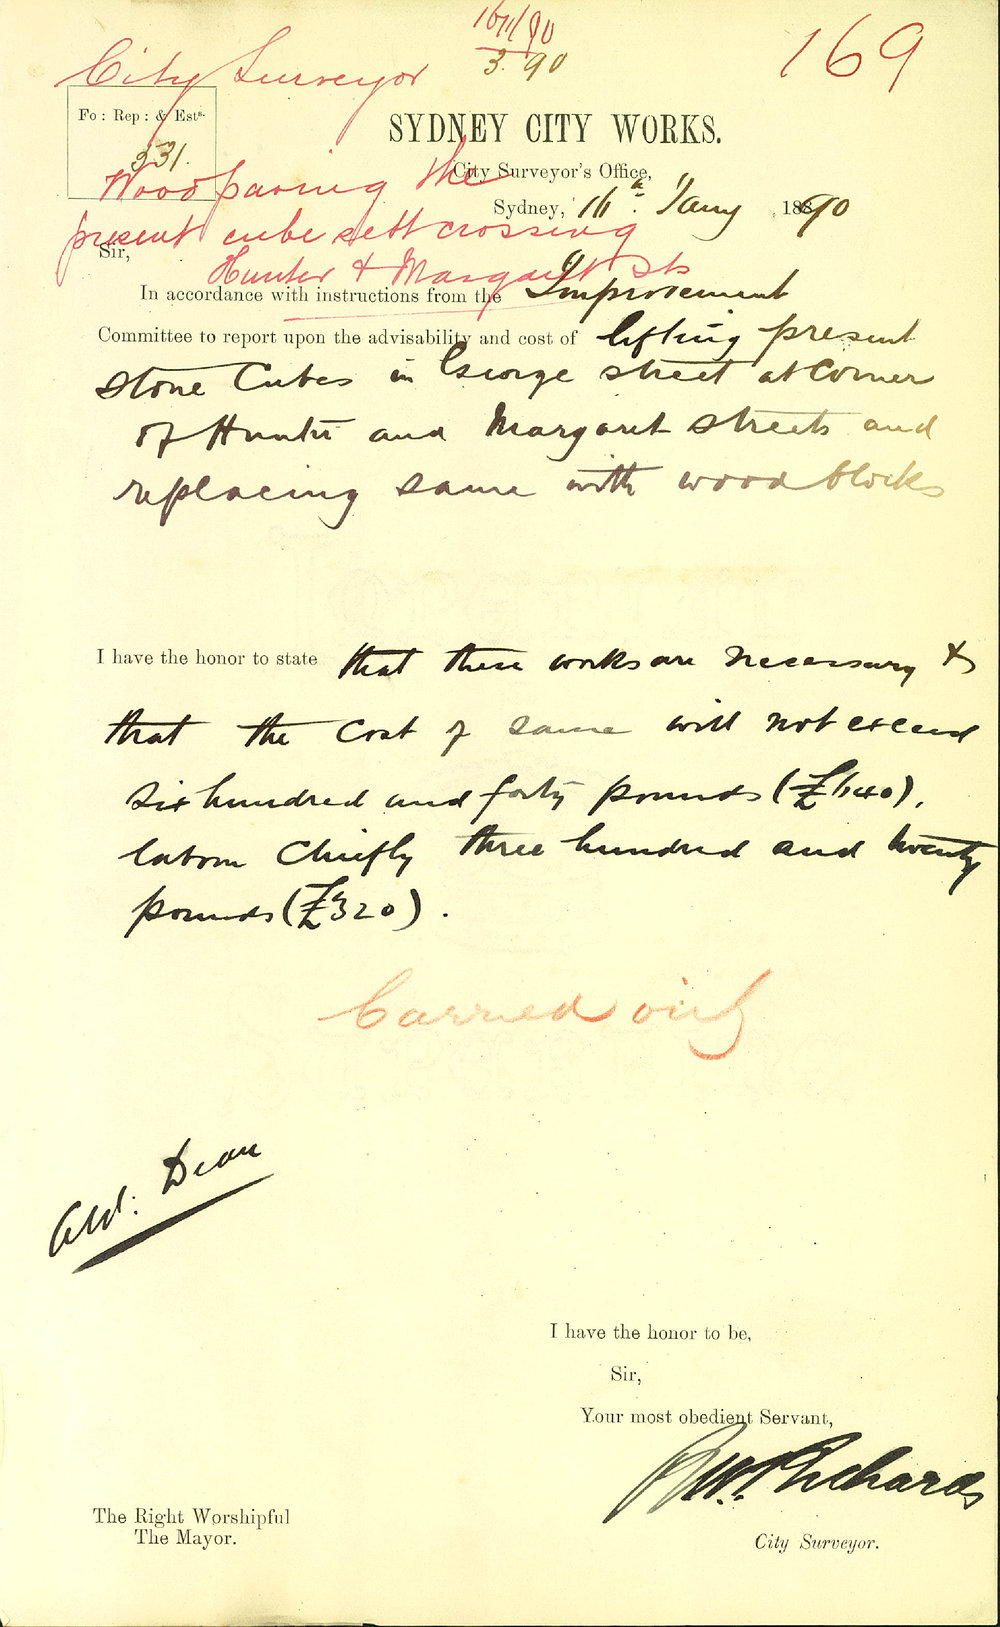 16/1/90
3. 90
169
City Surveyor
Fo: Rep: & Ests.
331.
SYDNEY CITY WORKS.
City Surveyor's Office,
Wood paving the
Sydney, 16th Jany 1890
present cube sett crossing
Sir,
Hunter & Margaret Sts
In accordance with instructions from the Improvement
Committee to report upon the advisability and cost of lifting present
stone Cubes in George street at Corner
of Hunter and Margaret streets and
replacing same with wood blocks
I have the honor to state that these works are necessary &
that the Cost of same will not exceed
six hundred and forty pounds (£640),
labour Chiefly three hundred and twenty
pounds (£320).
Carried out
Ald. Dean
I have the honor to be,
Sir,
Your most obedient Servant,
Richards
The Right Worshipful
The Mayor.
City Surveyor.